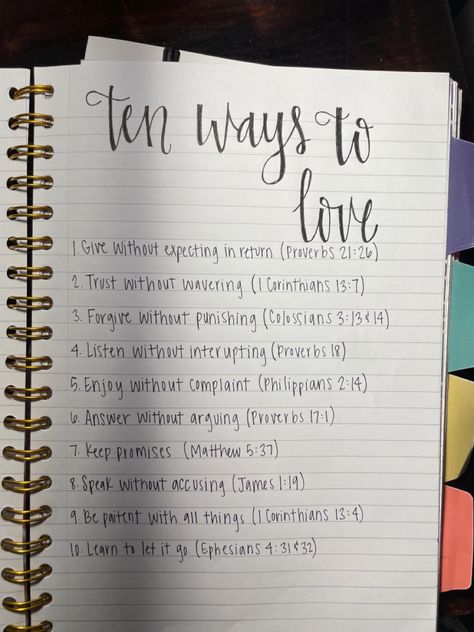 ten ways to
love
1. Give without expecting in return (Proverbs 21:26)
2. Trust without wavering (1 Corinthians 13:7)
3. Forgive without punishing (Colossians 3:13 & 14)
4. Listen without interupting (Proverbs 18)
5. Enjoy without complaint (Philippians 2:14)
6. Answer without arguing (Proverbs 17:1)
7. Keep promises (Matthew 5:37)
8. Speak without accusing (James 1:19)
9. Be paitent with all things (1 Corinthians 13:4)
10. Learn to let it go (Ephesians 4:31 & 32)